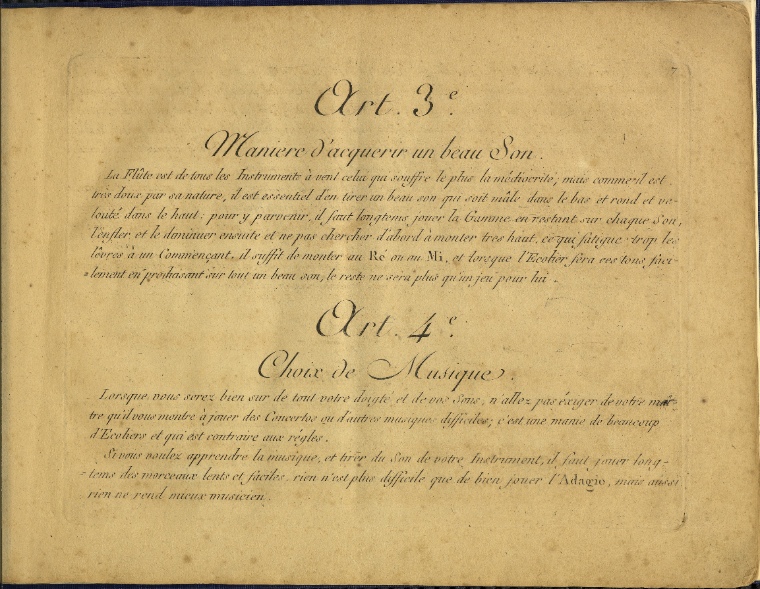 Art. 3e.
Maniere d'acquerir un beau Son.
La Flûte est de tous les Instruments à vent celui qui souffre le plus la médiocrité; mais comme il est
très doux par sa nature, il est essentiel d'en tirer un beau son qui soit mâle dans le bas et rond et ve-
louté dans le haut: pour y parvenir, il faut longtems jouer la Gamme en restant sur chaque Son,
l'enfler et le diminuer ensuite et ne pas chercher d'abord à monter tres haut, ce qui fatigue trop les
lèvres à un Commençant. il suffit de monter au Ré ou au Mi, et lorsque l'Ecolier fera ces tons faci-
-lement en produisant sur tout un beau son, le reste ne sera plus qu'un jeu pour lui.
Art. 4e.
Choix de Musique.
Lorsque vous serez bien sur de tout votre doigté et de vos Sons, n'allez pas éxiger de votre maî-
tre qu'il vous montre à jouer des Concertos ou d'autres musiques difficiles; c'est une manie de beaucoup
d'Ecoliers et qui est contraire aux régles.
Si vous voulez apprendre la musique, et tirer du Son de votre Instrument, il faut jouer long-
-tems des morceaux lents et faciles. rien n'est plus difficile que de bien jouer l'Adagio, mais aussi
rien ne rend mieux musicien.